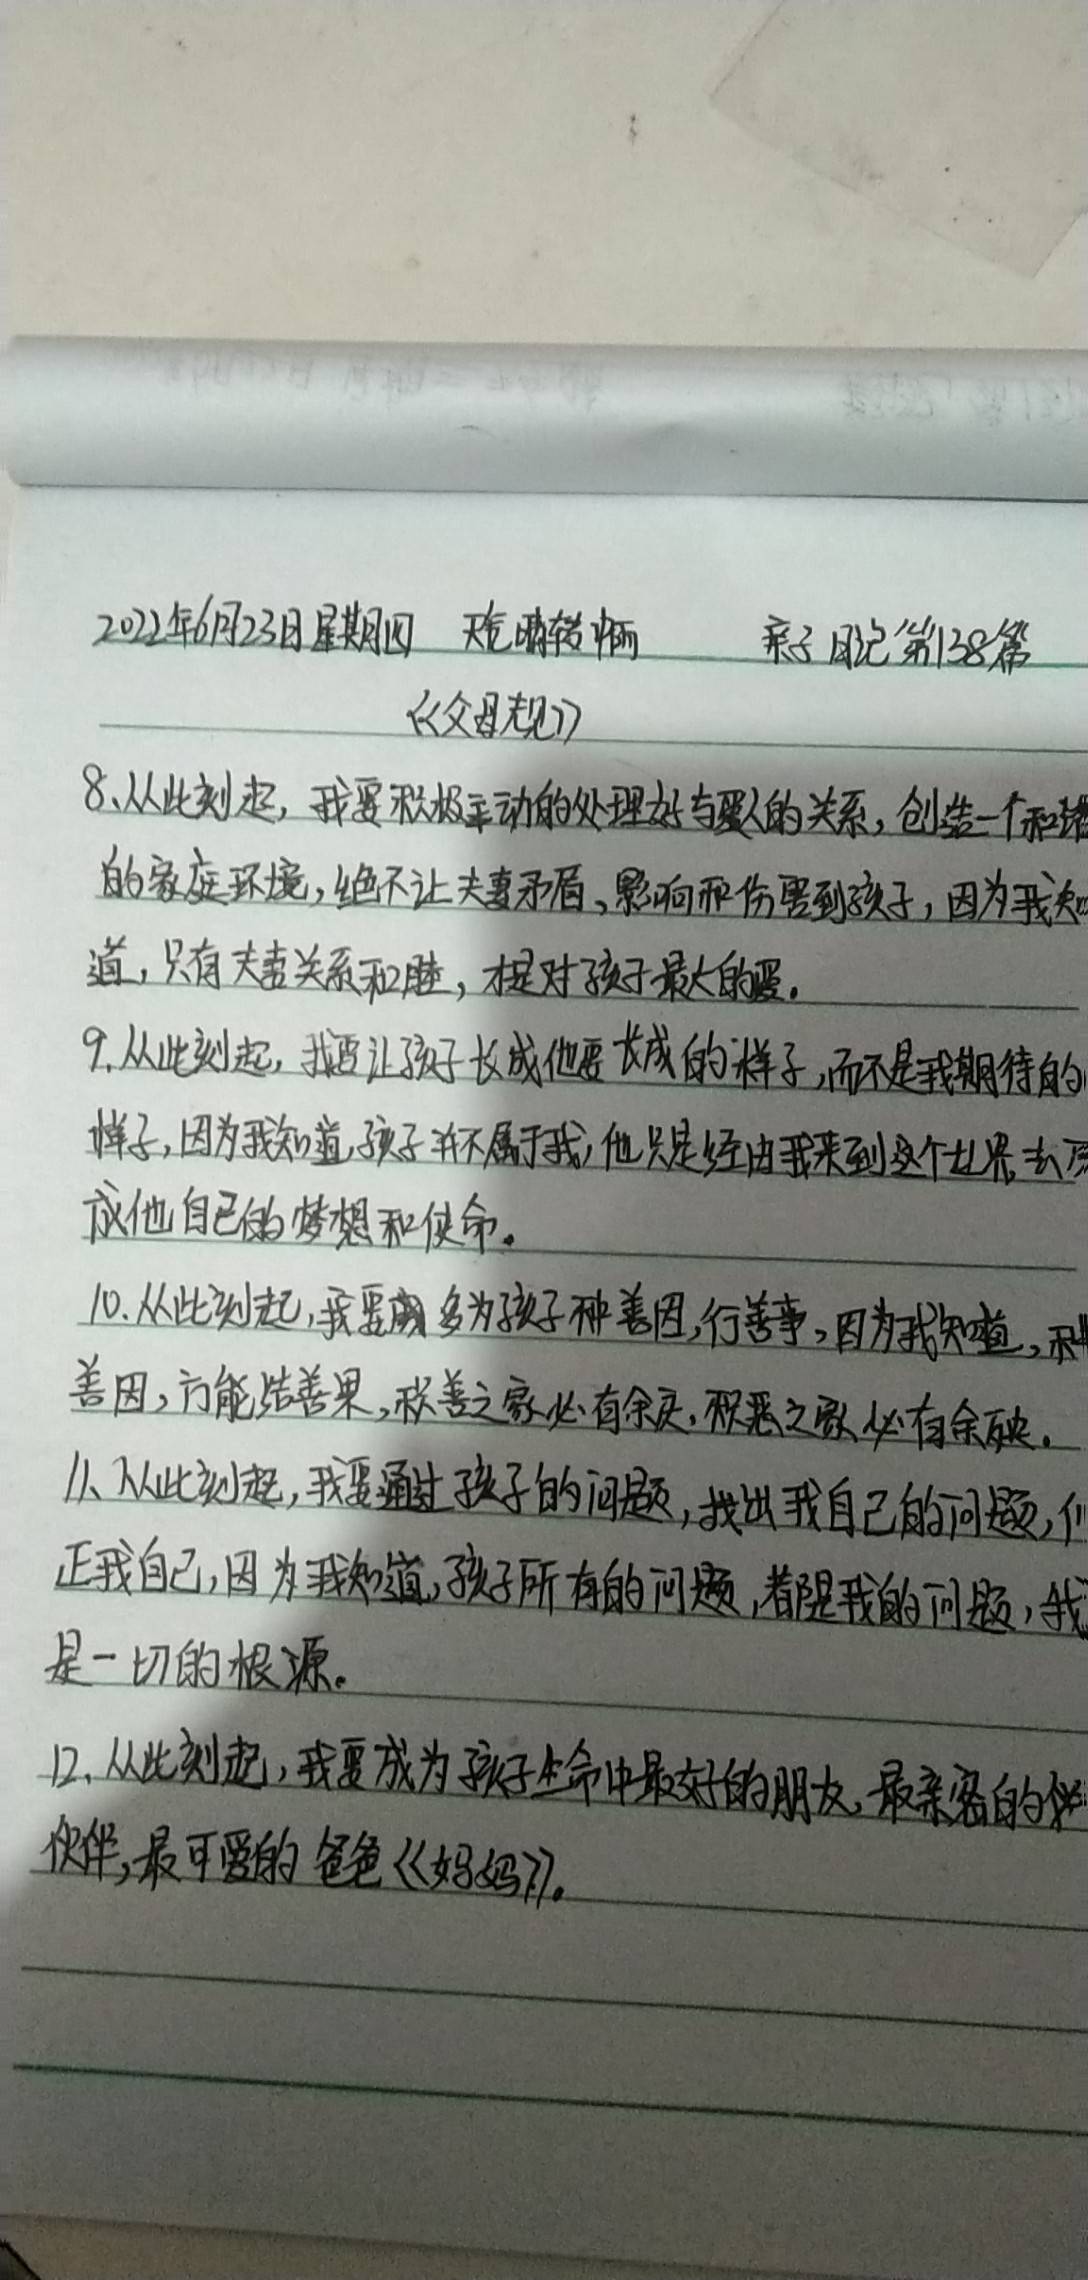 2022年6月23日星期四 天气晴转小雨 亲子日记第138篇
《父母规》
8、从此刻起，我要积极主动的处理好与爱人的关系，创造一个和谐
的家庭环境，绝不让夫妻矛盾、影响和伤害到孩子，因为我知
道，只有夫妻关系和睦，才是对孩子最大的爱。
9.从此刻起，我要让孩子长成他要长成的样子，而不是我期待的
样子，因为我知道，孩子并不属于我，他只是经由我来到这个世界去完
成他自己的梦想和使命。
10.从此刻起，我要多为孩子种善因，行善事，因为我知道，种
善因，方能结善果，积善之家必有余庆，积恶之家必有余殃。
11、从此刻起，我要通过孩子的问题，找出我自己的问题，修
正我自己，因为我知道，孩子所有的问题，都是我的问题，我
是一切的根源。
12、从此刻起，我要成为孩子生命中最好的朋友，最亲密的
伙伴，最可爱的爸爸《妈妈》。